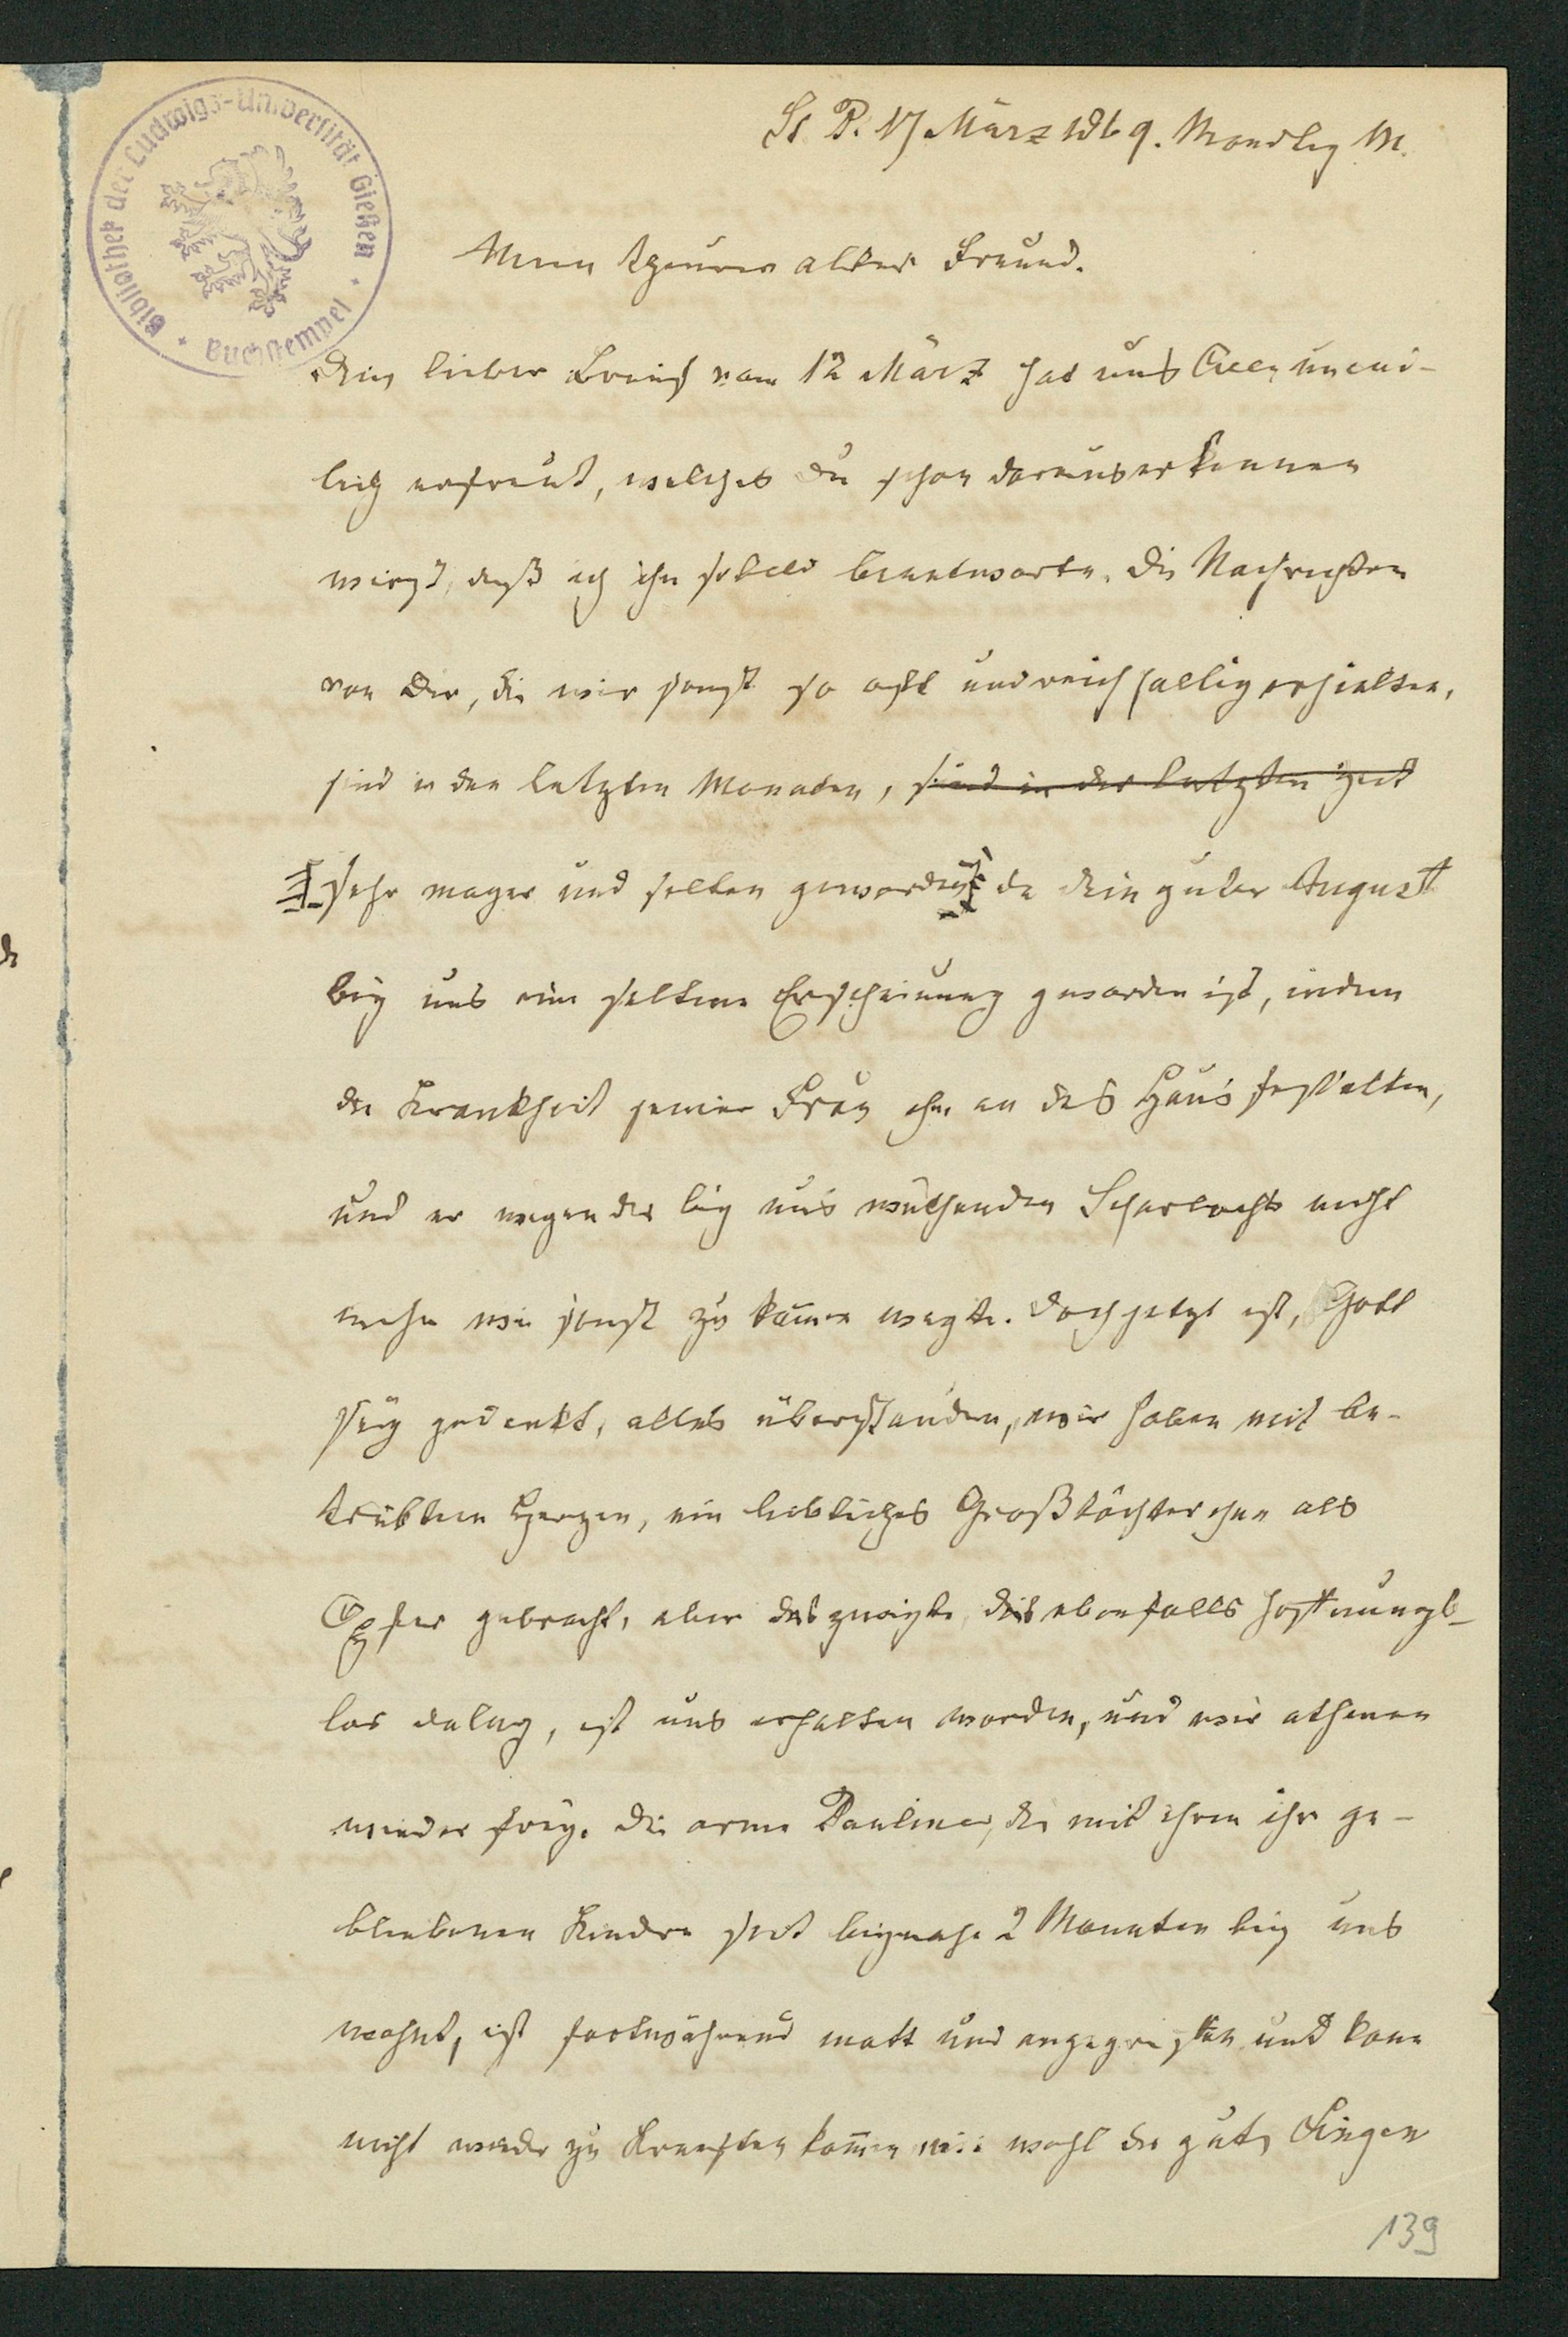 Bibliothek der Ludwigs-Universität Gießen
Buchstempel
St. P. 17 März 1869. Mondtag M.
Mein theurer alter Freund.
Dein lieber Brief vom 12 März hat uns Allen unend-
lich erfreut, welches Du schon daraus erkennen
wirst, daß ich ihn sobald beantworte. Die Nachrichten
von Dir, die wir sonst so oft und reichhaltig erhielten,
sind in den letzten Monaten, sind in der letzten Zeit
sehr mager und selten geworden, da dein guter August
bey uns eine seltene Erscheinung geworden ist, indem
die Krankheit seiner Frau ihn an das Haus fesselten,
und er wegen des bey uns wüthenden Scharlachs nicht
mehr wie sonst zu kommen wagte. Doch jetzt ist, Gott
sey gedankt, alles überstanden, wir haben mit be-
trübtem Herzen, ein liebliches Großtöchterchen als
Opfer gebracht, aber das zweite, das ebenfalls hoffnungs-
los dalag, ist uns erhalten worden, und wir athmen
wieder frey. Die arme Pauline, die mit ihren ihr ge-
bliebenen Kindern seit beynahe 2 Monaten bey uns
wohnt, ist fortwährend matt und angegriffen und kann
nicht wieder zu Kräften kommen wie wohl die gute
139